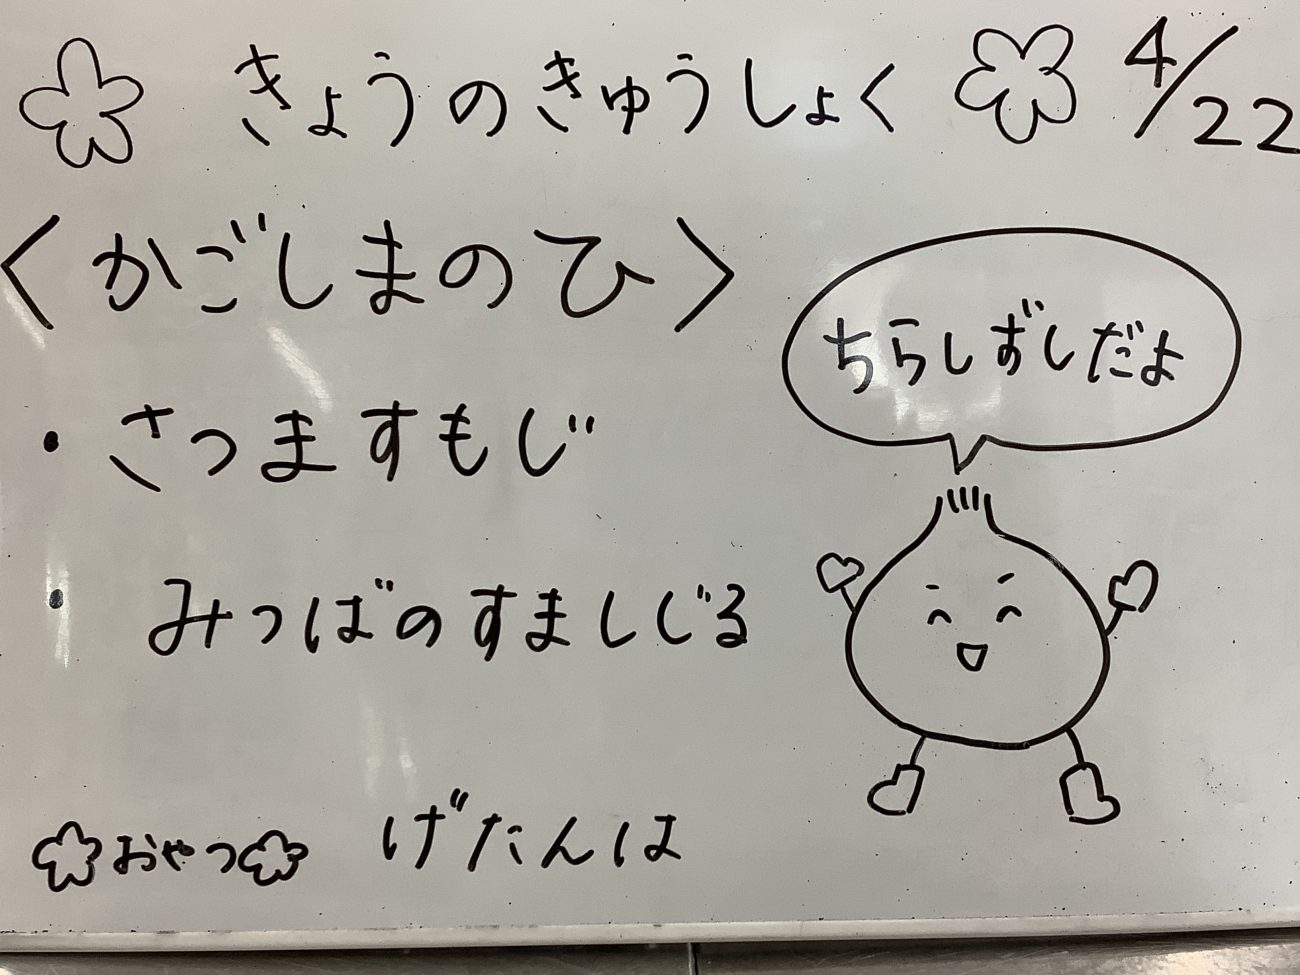 きょうのきゅうしょく 4/22
〈かごしまのひ〉
ちらしずしだよ
・さつますもじ
・みつばのすましじる
おやつ げたんは